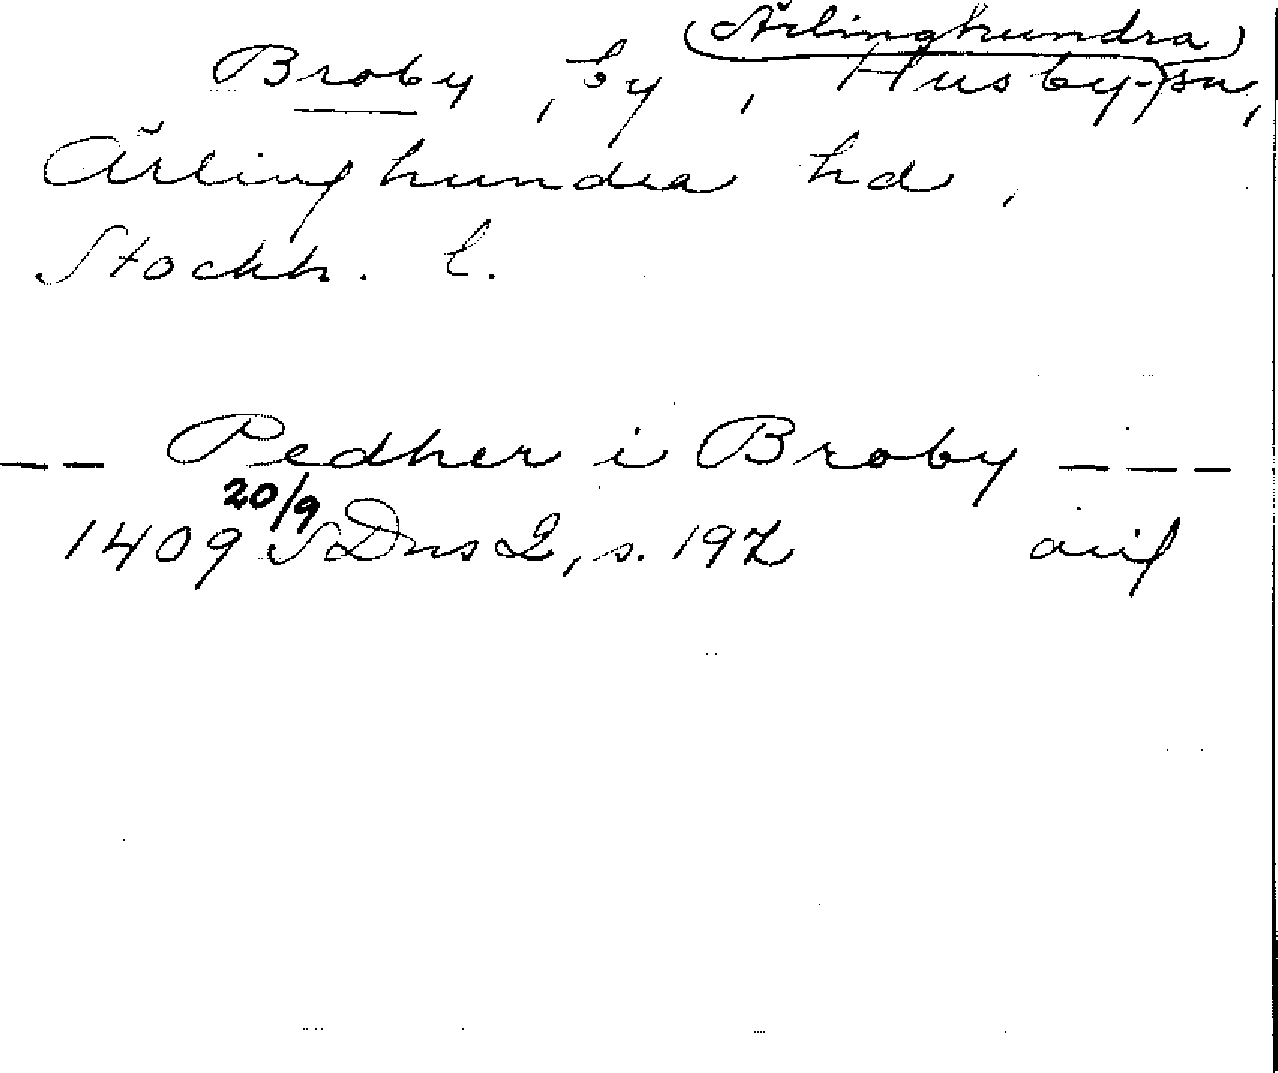 (Ärlinghundra)
Broby, by, Husby-sn,
Ärlinghundra hd,
Stockh. l.
-- Pedher i Broby ---
20/9
1409 SDns 2, s. 192 avif